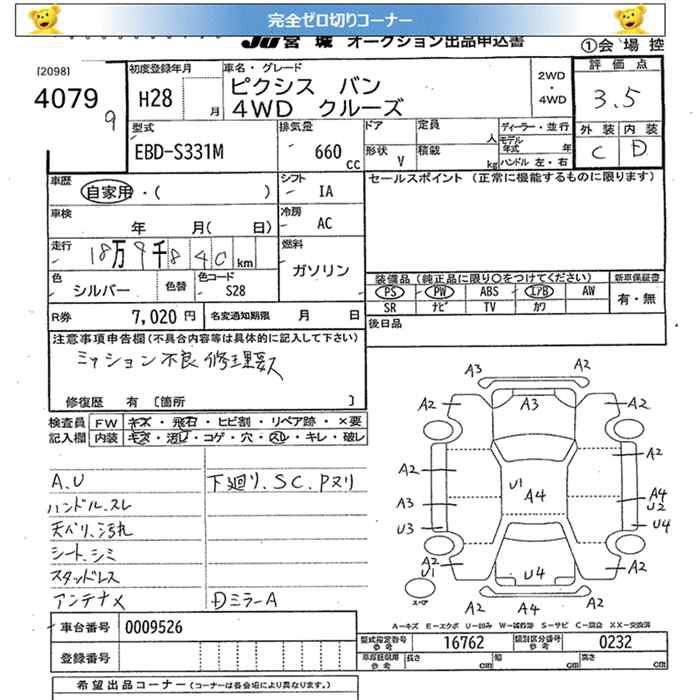 完全ゼロ切りコーナー
JU宮城 オークション出品申込書
①会場控
[2098]
4079
9
初度登録年月
H28
月
車名・グレード
ピクシス バン
4WD クルーズ
2WD
・
4WD
評価点
3.5
外装 内装
C D
型式
EBD-S331M
排気量
660
cc
ドア
定員
人
形状
V
積載
kg
ディーラー・並行
モデル年式
年
ハンドル 左・右
車歴
自家用・( )
シフト
IA
セールスポイント (正常に機能するものに限ります)
車検
年 月( 日)
冷房
AC
走行
18万9千840km
燃料
ガソリン
色
シルバー
色替
色コード
S28
装備品 (純正品に限り○をつけてください)
新車保証書
PS PW ABS エアB AW
有・無
SR ナビ TV カワ
R券
7,020円
名変通知期限 月 日
後日品
注意事項申告欄(不具合内容等は具体的に記入して下さい)
ミッション不良 修理要ス
修復歴 有 [箇所 ]
検査員
記入欄
FW キズ・飛石・ヒビ割・リペア跡・×要
内装 キズ・汚レ・コゲ・穴・スレ・キレ・破レ
A.U
ハンドル.スレ
天ベリ.汚れ
シート.シミ
スタッドレス
アンテナメ
下廻り.SC.Pヌリ
DミラーA
A3 A2
A2 A3 A2
A2 A2
A3 U1 A4 A4
U2
U3 U4
A2 U4 A2
U1
スペア
A2 A4 A2
A-キズ E-エクボ U-凹み W-補修跡 S-サビ C-腐食 XX-交換済
車台番号 0009526
登録番号
型式指定番号
参考
16762
類別区分番号
参考
0232
車庫証明用
参考
長さ cm 幅 cm 高さ cm
希望出品コーナー(コーナーは各会場により異なります。)